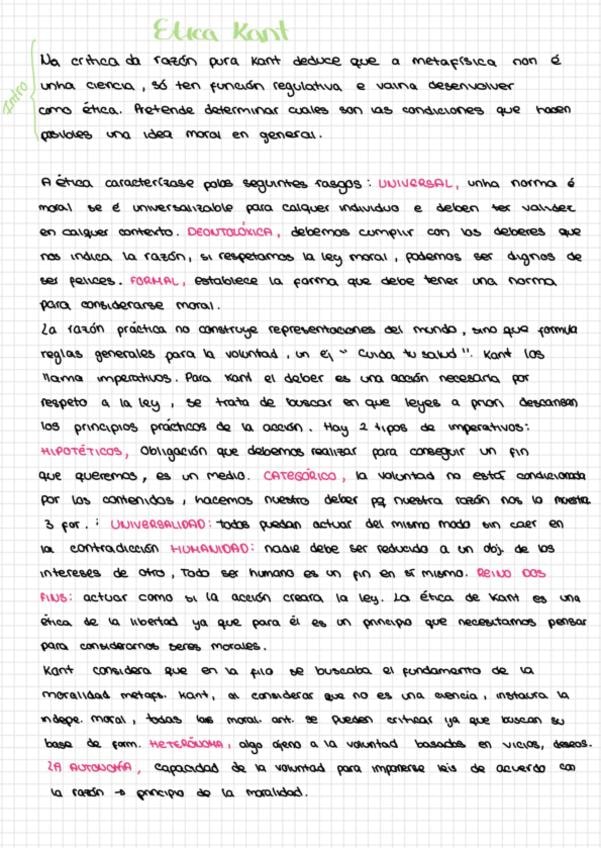 Etica Kant
Intro
Na crítica da razón pura Kant deduce que a metafísica non é
unha ciencia, só ten función regulativa e vaina desenvolver
como ética. Pretende determinar cuales son las condiciones que hacen
posibles una idea moral en general.
A ética caracterízase polos seguintes rasgos: UNIVERSAL, unha norma é
moral se é universalizable para calquer individuo e deben ter validez
en calquer contexto. DEONTOLÓXICA, debemos cumplir con los deberes que
nos indica la razón, si respetamos la ley moral, podemos ser dignos de
ser felices. FORMAL, establece la forma que debe tener una norma
para considerarse moral.
La razón práctica no construye representaciones del mundo, sino que formula
reglas generales para la voluntad, un ej "Cuida tu salud". Kant los
llama imperativos. Para Kant el deber es una acción necesaria por
respeto a la ley, se trata de buscar en que leyes a priori descansan
los principios prácticos de la acción. Hay 2 tipos de imperativos:
HIPOTÉTICOS, Obligación que debemos realizar para conseguir un fin
que queremos, es un medio. CATEGÓRICO, la voluntad no está condicionada
por los contenidos, hacemos nuestro deber pq nuestra razón nos lo muestra.
3 for.: UNIVERSALIDAD: todos puedan actuar del mismo modo sin caer en
la contradicción HUMANIDAD: nadie debe ser reducido a un obj. de los
intereses de otro, Todo ser humano es un fin en sí mismo. REINO DOS
FINS: actuar como si la acción creara la ley. La ética de Kant es una
ética de la libertad ya que para él es un principio que necesitamos pensar
para considerarnos seres morales.
Kant considera que en la filo se buscaba el fundamento de la
moralidad metafs. Kant, al considerar que no es una ciencia, instaura la
indepe. moral, todas las moral. ant. se pueden criticar ya que buscan su
base de form. HETERÓNOMA, algo ajeno a la voluntad basados en vicios, deseos.
LA AUTONOMÍA, capacidad de la voluntad para imponerse leis de acuerdo con
la razón → principio de la moralidad.